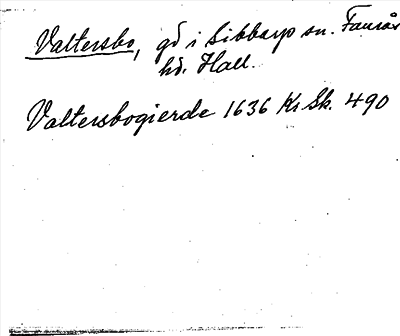 Valtersbo, gd i Sibbarps sn. Faurås
hd. Hall.
Valtersbogierde 1636 Kr Sk. 490